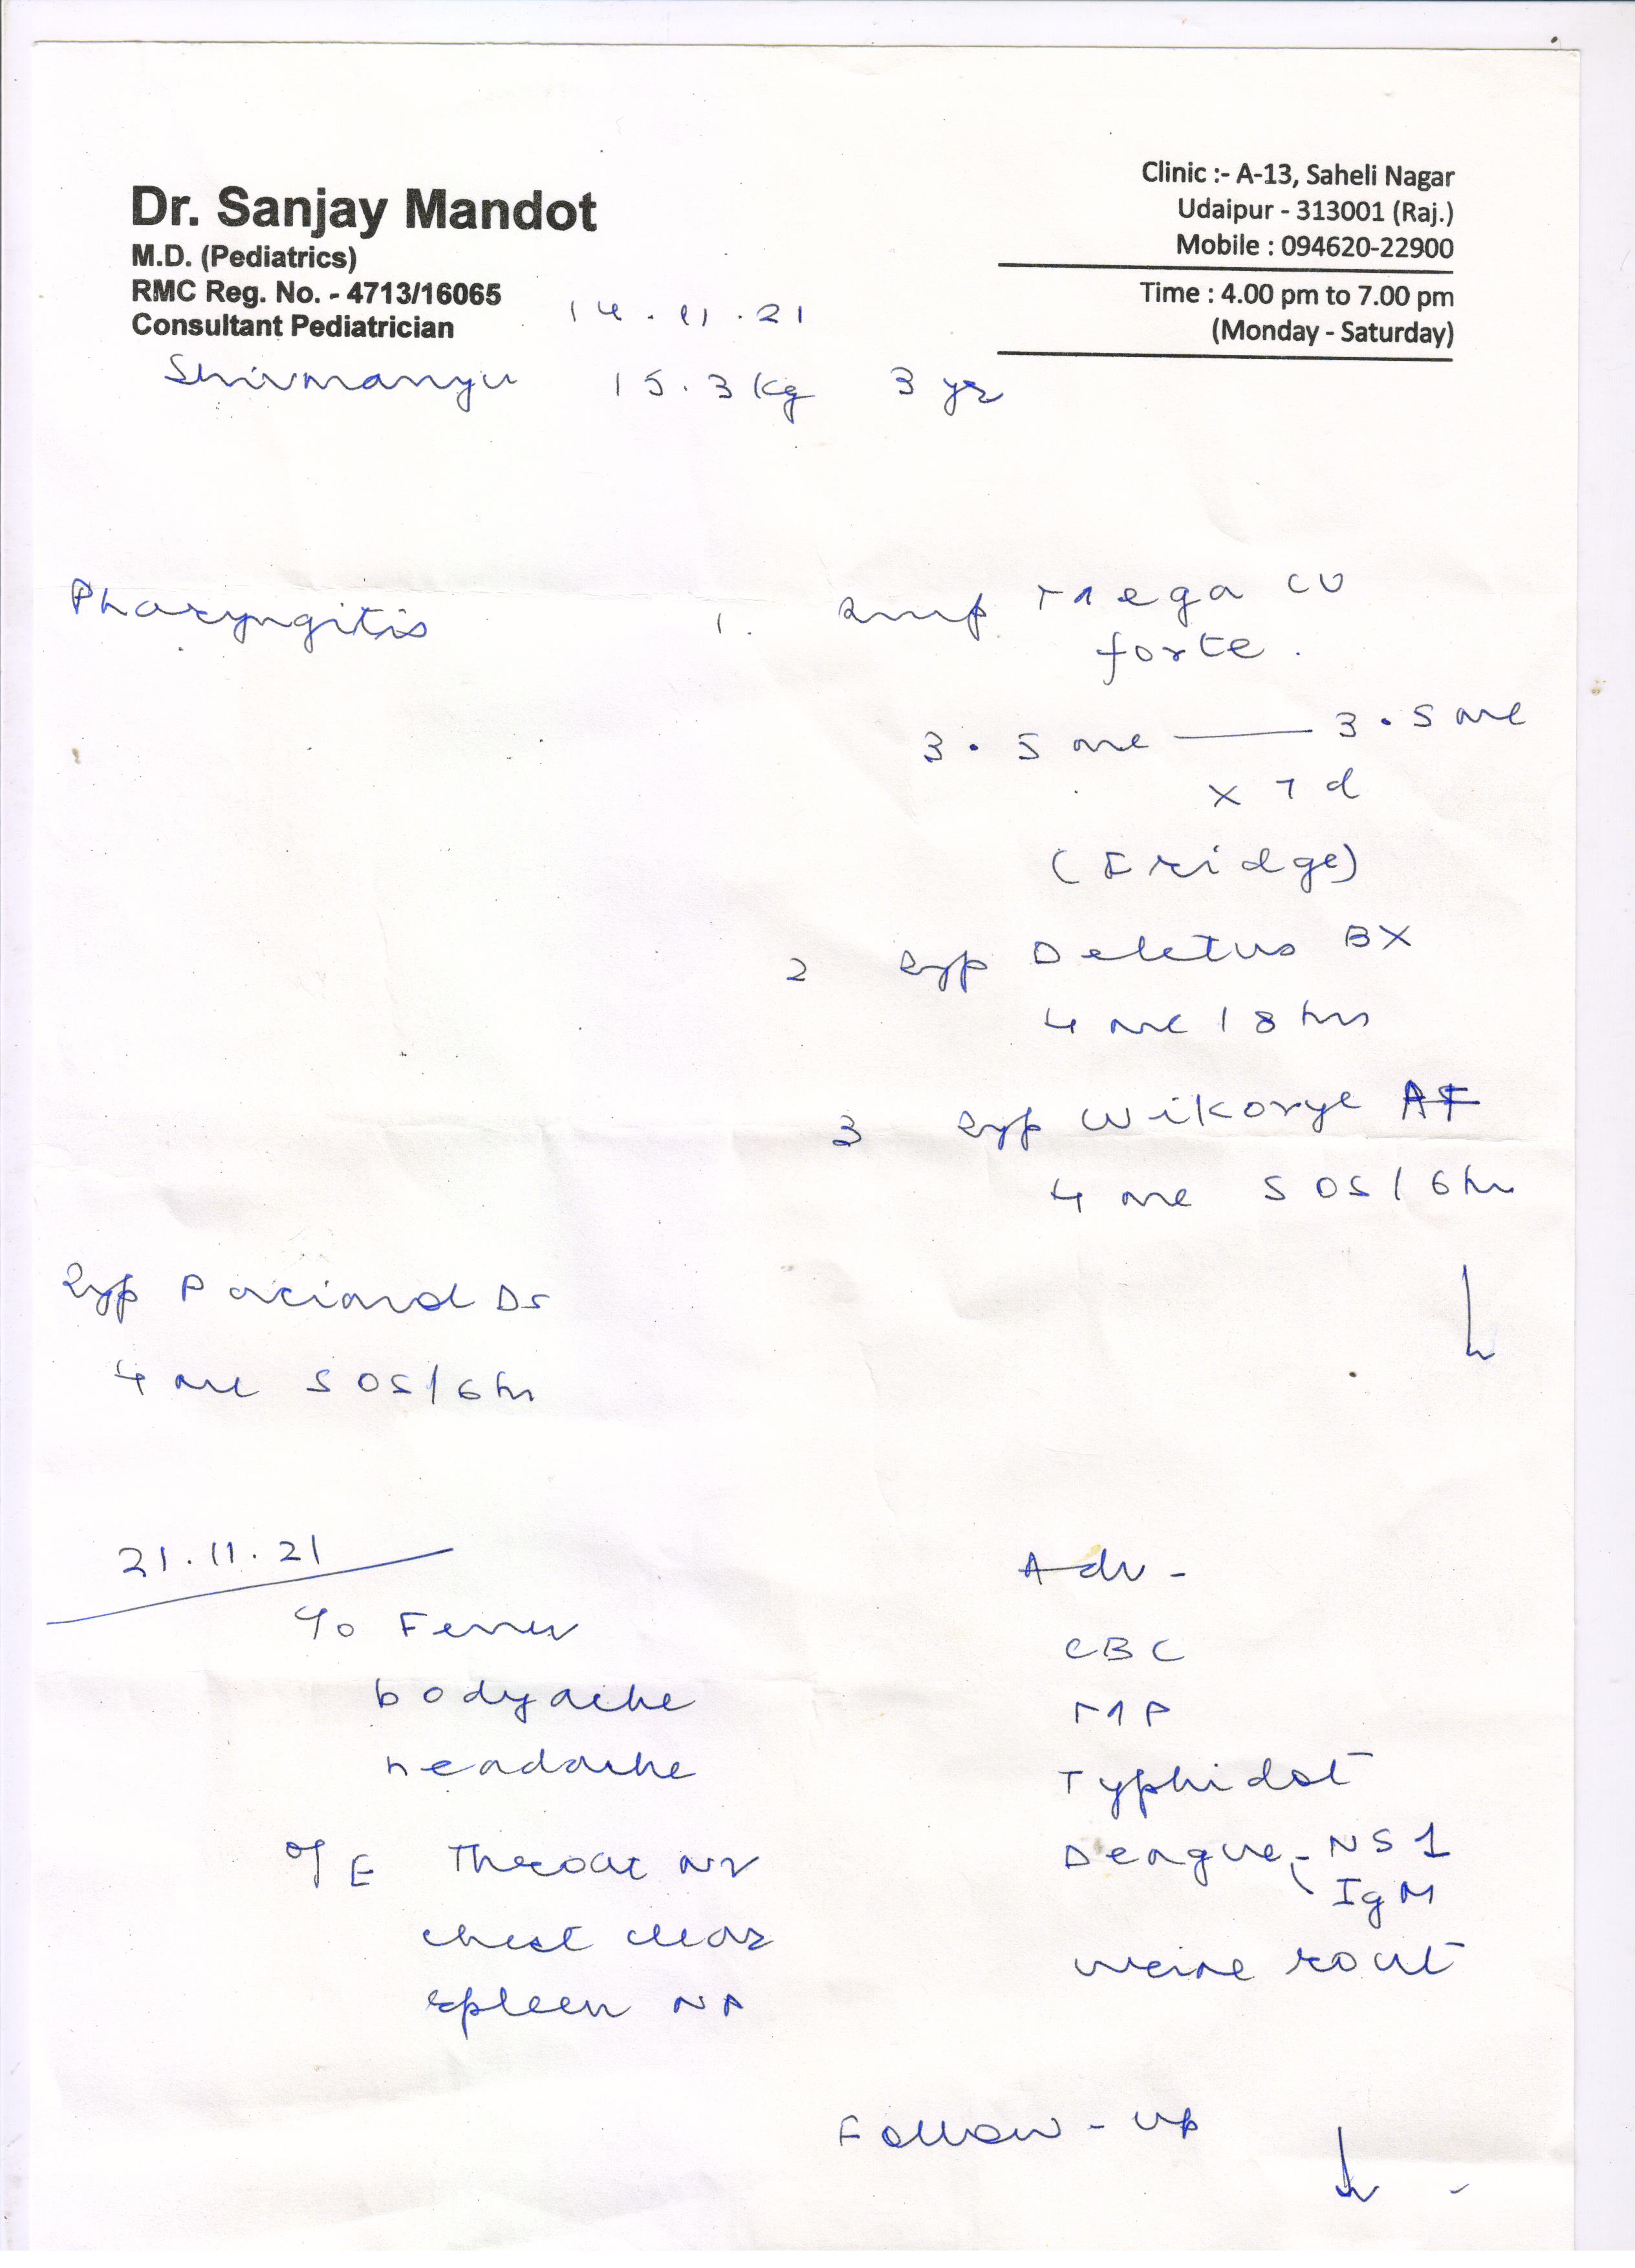 Dr. Sanjay Mandot
M.D. (Pediatrics)
RMC Reg. No. - 4713/16065
Consultant Pediatrician
Clinic :- A-13, Saheli Nagar
Udaipur - 313001 (Raj.)
Mobile : 094620-22900
Time : 4.00 pm to 7.00 pm
(Monday - Saturday)
14.11.21
Shivmanyu 15.3 kg 3 yr
Pharyngitis
1. Mega CV
forte.
3.5 ml — 3.5 ml
x 7 d
(Fridge)
2 Syp Deletus BX
4 ml / 8 hrs
3 Syp Wikoryl AF
4 ml SOS / 6 hr
Syp Pacimol DS
4 ml SOS / 6 hr
21.11.21
C/o Fever
bodyache
headache
O/E Throat
chest clear
spleen NP
Adv -
CBC
MP
Typhidot
Dengue - NS1
IgM
urine rout
Follow-up